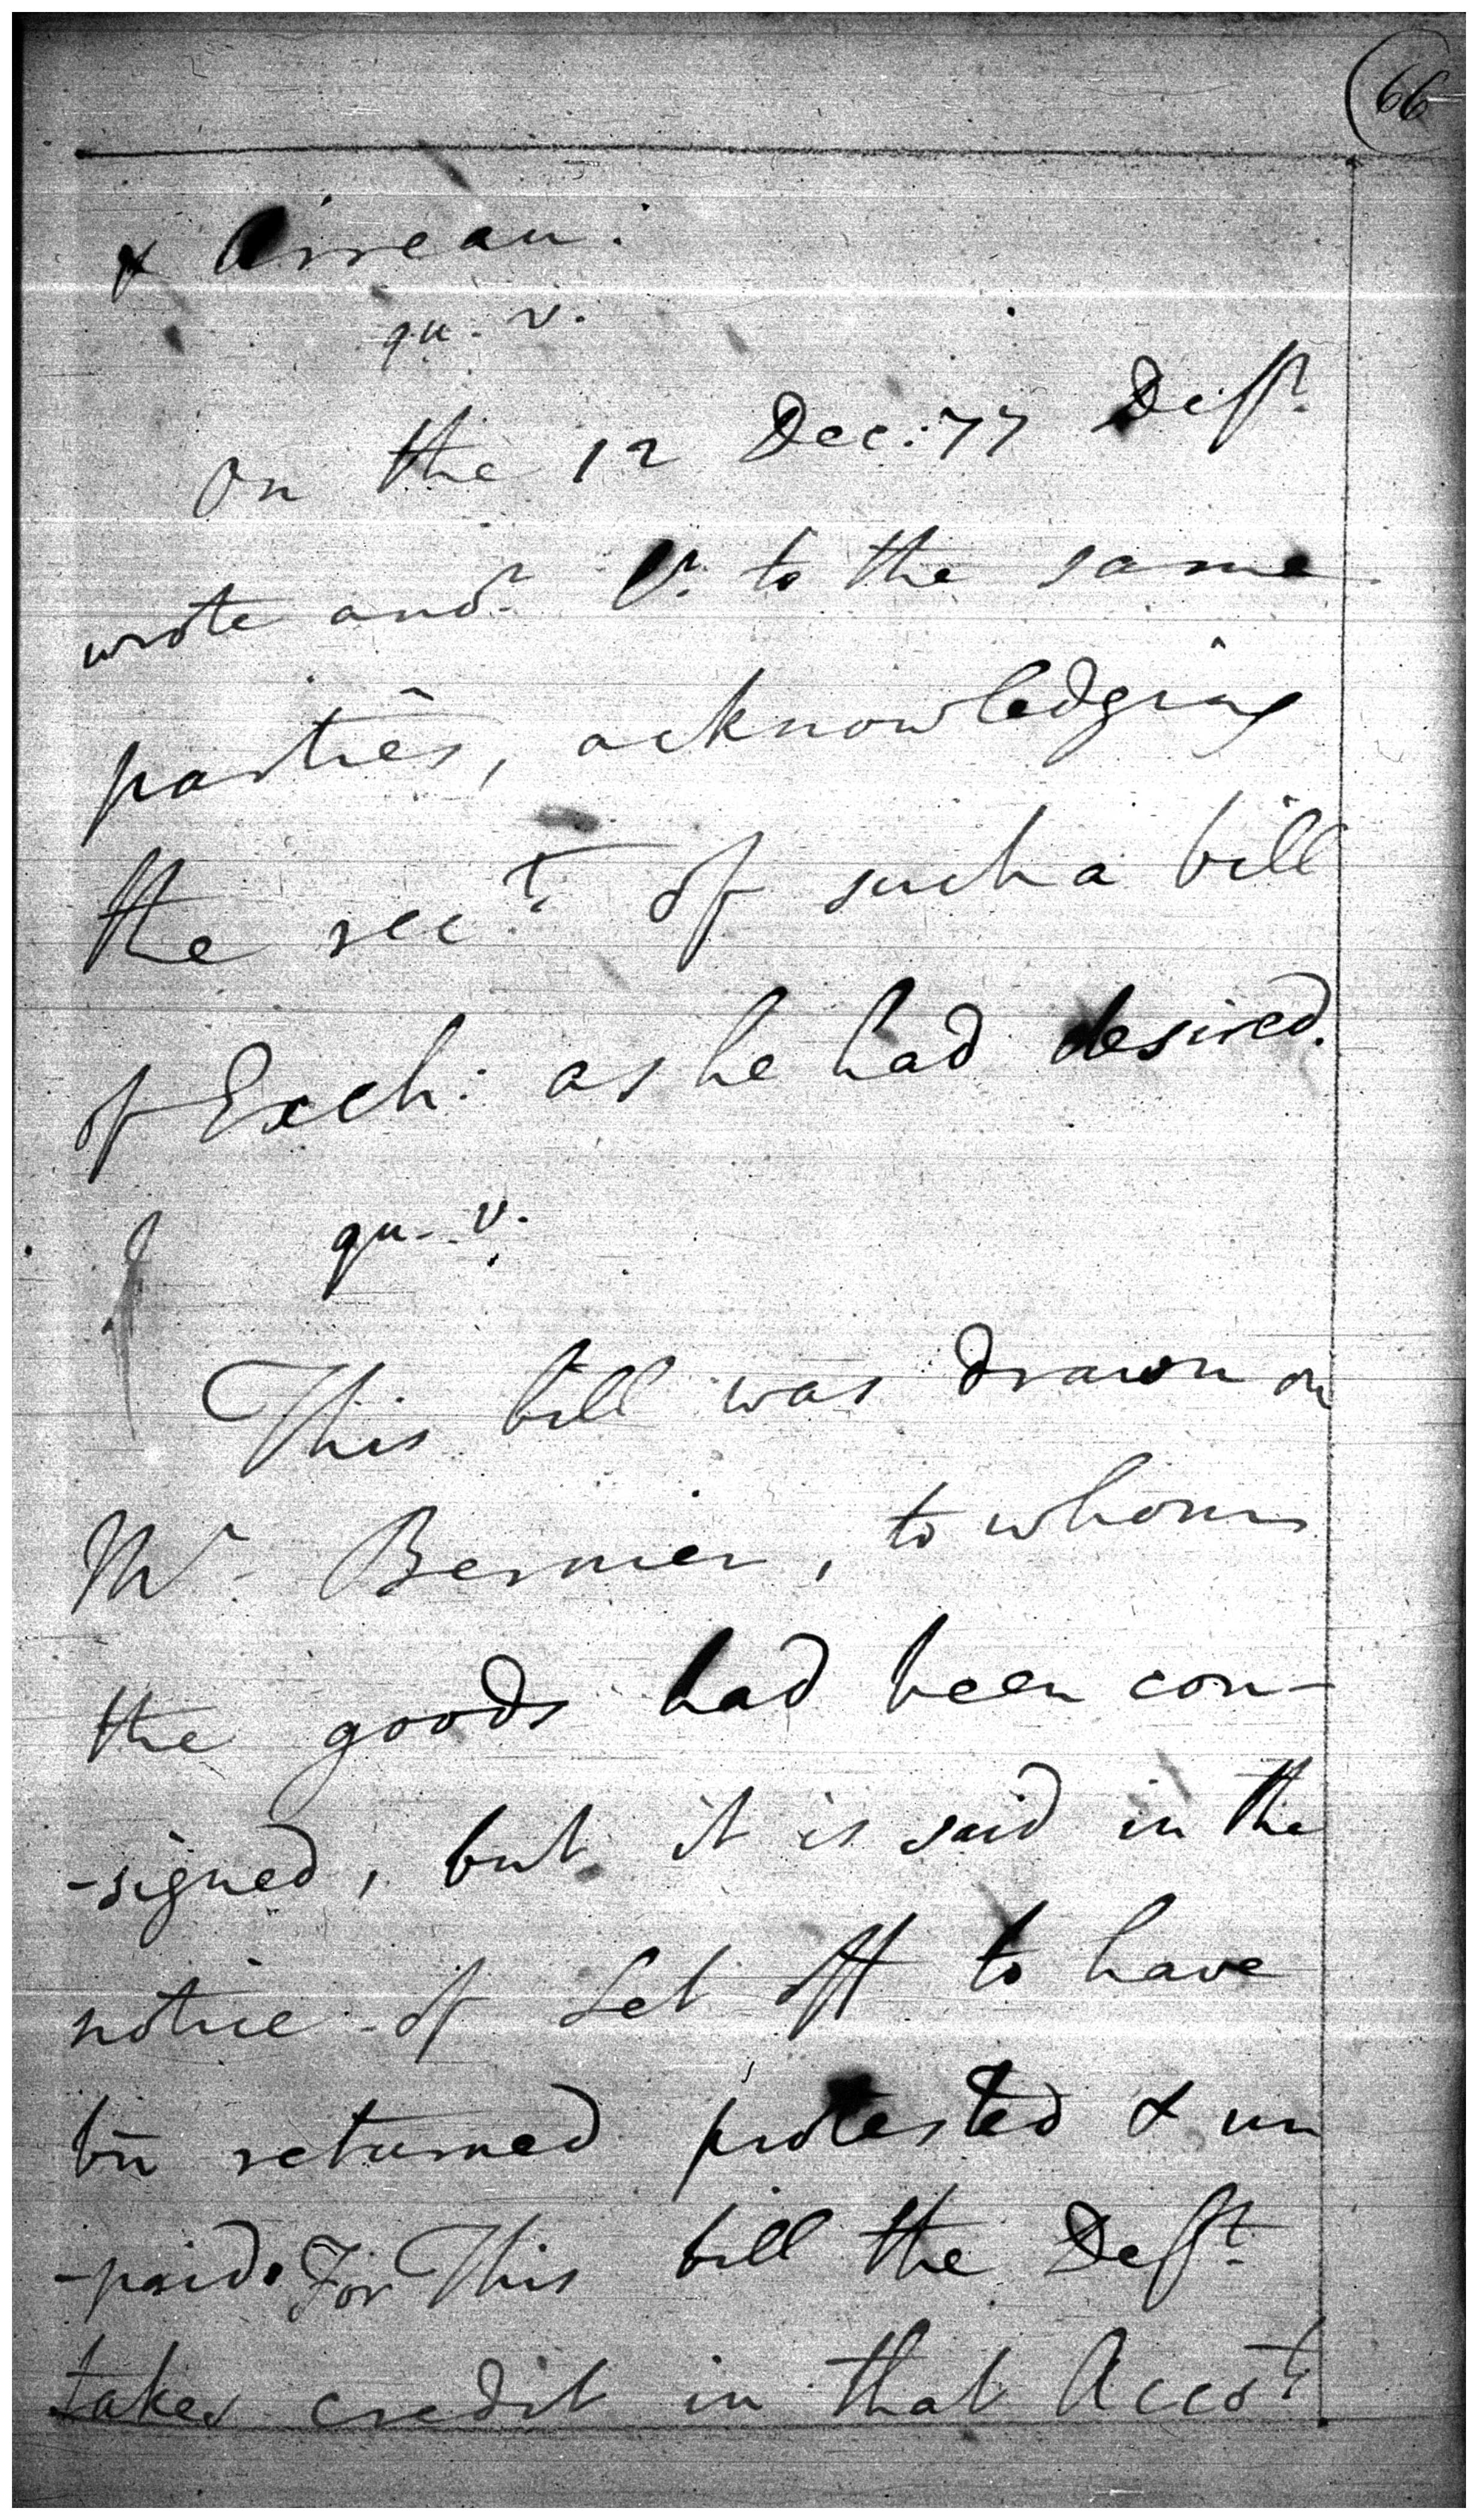 66
& Arreau.
qu. v.
On the 12 Dec: 77 Deft.
wrote anor. lr. to the same
parties, acknowledging
the rect. of such a bill
of Exch: as he had desired.
qu. v.
This bill was drawn on
Mr. Bernier, to whom
the goods had been con-
-signed, but it is said in the
notice of Set off to have
bn returned protested & un
-paid. For This bill the Deft.
takes credit in that Accot.